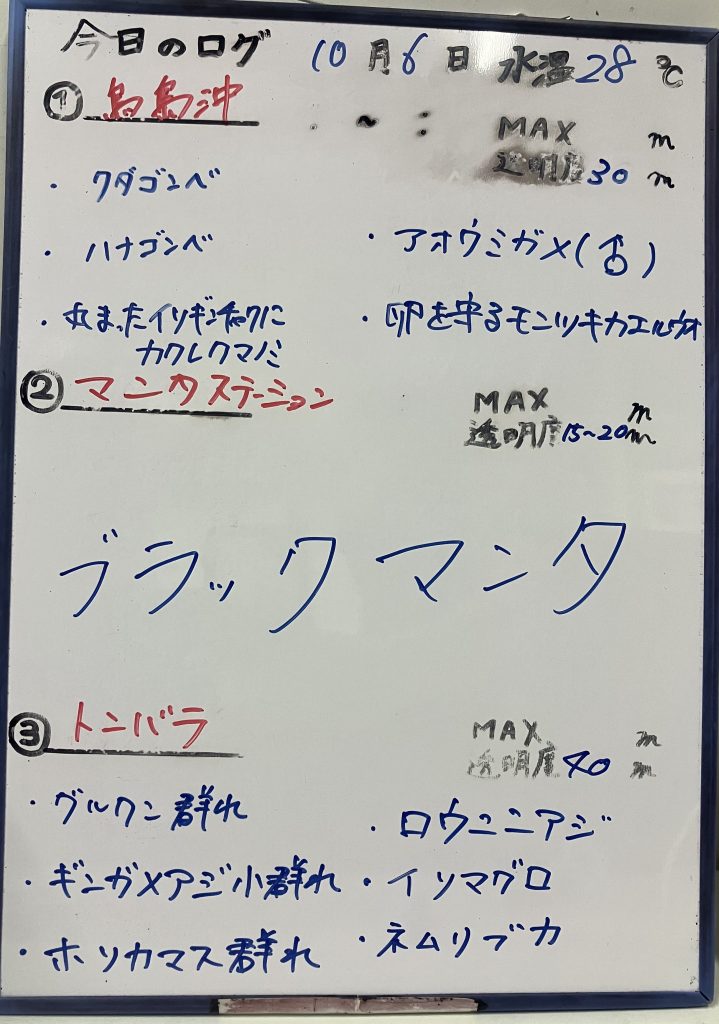 今日のログ 10月6日 水温28℃
① 鳥島沖 ~ :
MAX m
透明度30m
・クダゴンベ
・ハナゴンベ
・アオウミガメ(♂)
・丸まったイソギンチャクに
カクレクマノミ
・卵を守るモンツキカエルウオ
② マンタステーション
MAX m
透明度15~20m
ブラックマンタ
③ トンバラ
MAX m
透明度40m
・グルクン群れ
・ロウニンアジ
・ギンガメアジ小群れ
・イソマグロ
・ホソカマス群れ
・ネムリブカ